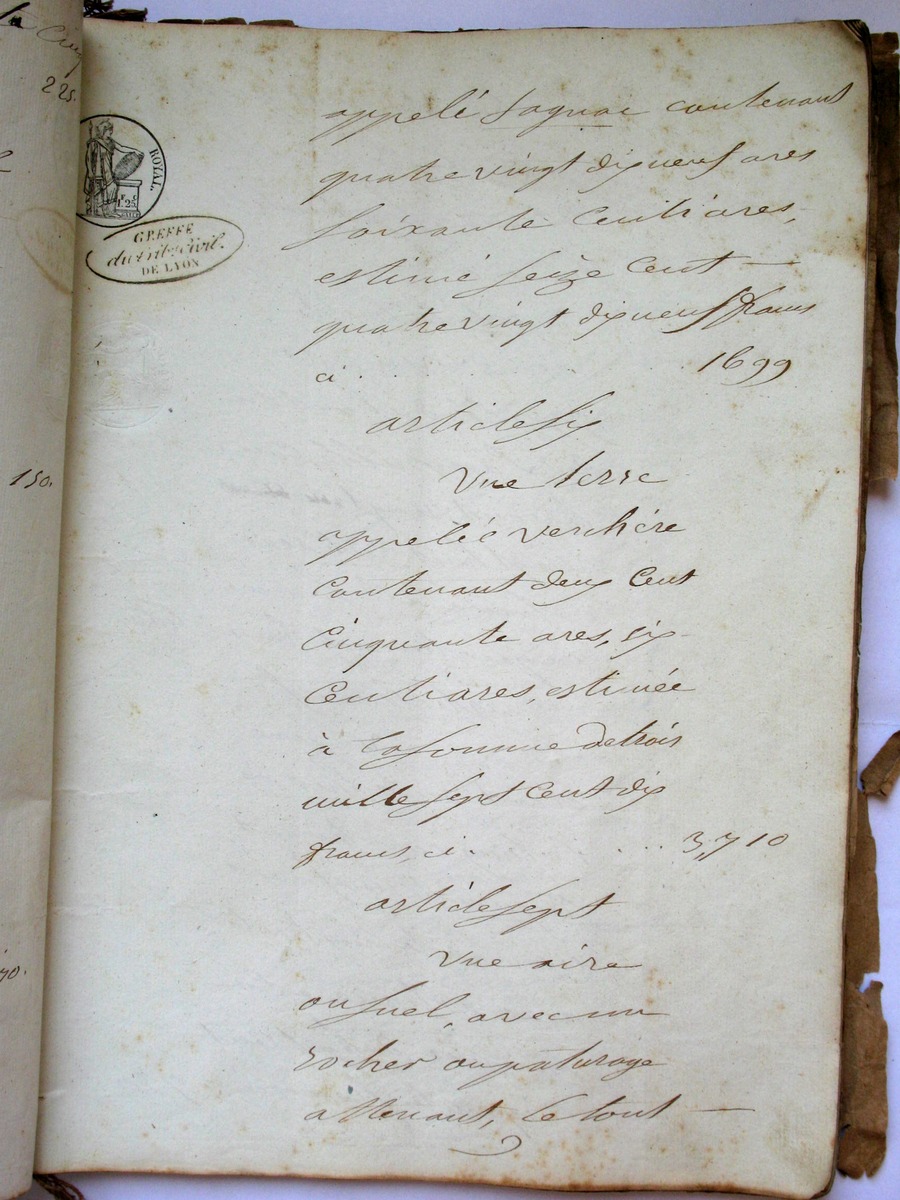 225.
ROYAL.
1F. 25c
GREFFE
du trib. civil.
DE LYON
appelé Sagnac contenant
quatre vingt dix neuf ares
soixante centiares,
estimé seize cent —
quatre vingt dix neuf francs
ci . . . . 1699
article six
une terre
appelée verchère
contenant deux cent
cinquante ares, six
centiares, estimée
à la somme de trois
mille sept cent dix
francs, ci. . . . 3,710
article sept
une aire
ou suel, avec un
rocher ou paturage
attenant, le tout —
150.